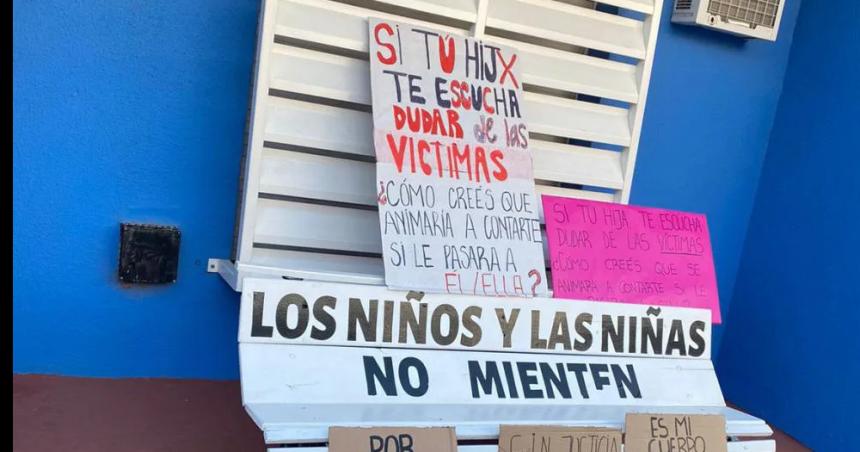 SI TÚ HIJX
TE ESCUCHA
DUDAR de las
VICTIMAS
¿CÓMO CREÉS QUE
ANIMARÍA A CONTARTE
SI LE PASARA A
ÉL/ELLA?
SI TU HIJA TE ESCUCHA
DUDAR DE LAS VÍCTIMAS
¿CÓMO CREES QUE SE
ANIMARA A CONTARTE SI LE
LOS NIÑOS Y LAS NIÑAS
NO MIENTEN
POR
SIN JUSTICIA
ES MI
CUERPO